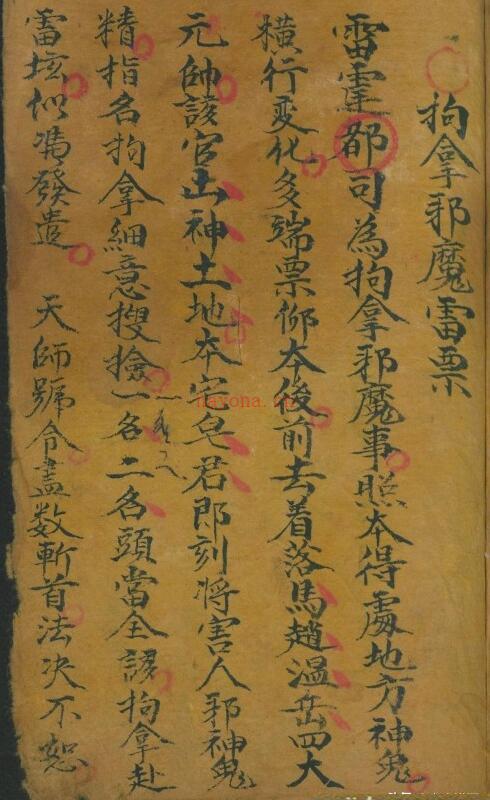 拘拿邪魔雷票
雷霆都司為拘拿邪魔事照本得處地方神鬼
橫行变化多端票仰本後前去着落馬趙溫岳四大
元帥該官山神土地本宅皂君郎刻将害人邪神鬼
精指名拘拿細意搜撿一名二名頭當全諺拘拿赴
雷垓似馮發遣 天師號令盡数斬首法决不恕
nayona.cn